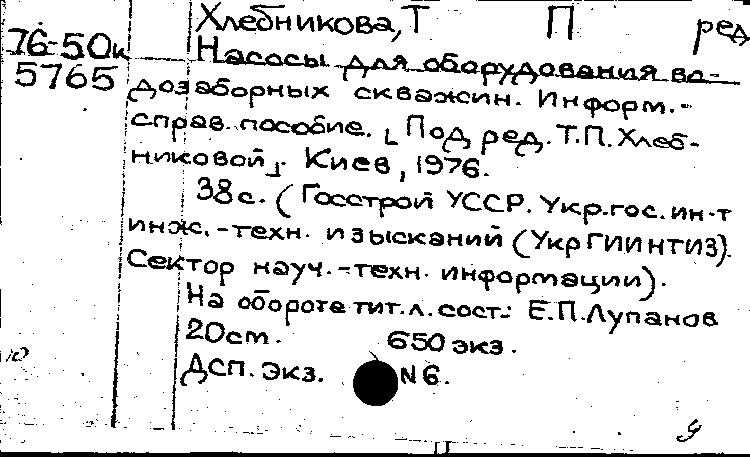 Хлебникова, Т П ред
76-50к
Насосы для оборудования во-
5765
дозаборных скважин. Информ.-
справ. пособие. [Под ред. Т.П. Хлеб-
никовой]. Киев, 1976.
38с. (Госстрой УССР. Укр.гос. ин-т
инж.-техн. изысканий (УкрГИИНТИЗ).
Сектор науч.-техн. информации).
На обороте тит.л. сост.: Е.П.Лупанов
20см. 650 экз.
ДСП. экз. N6.